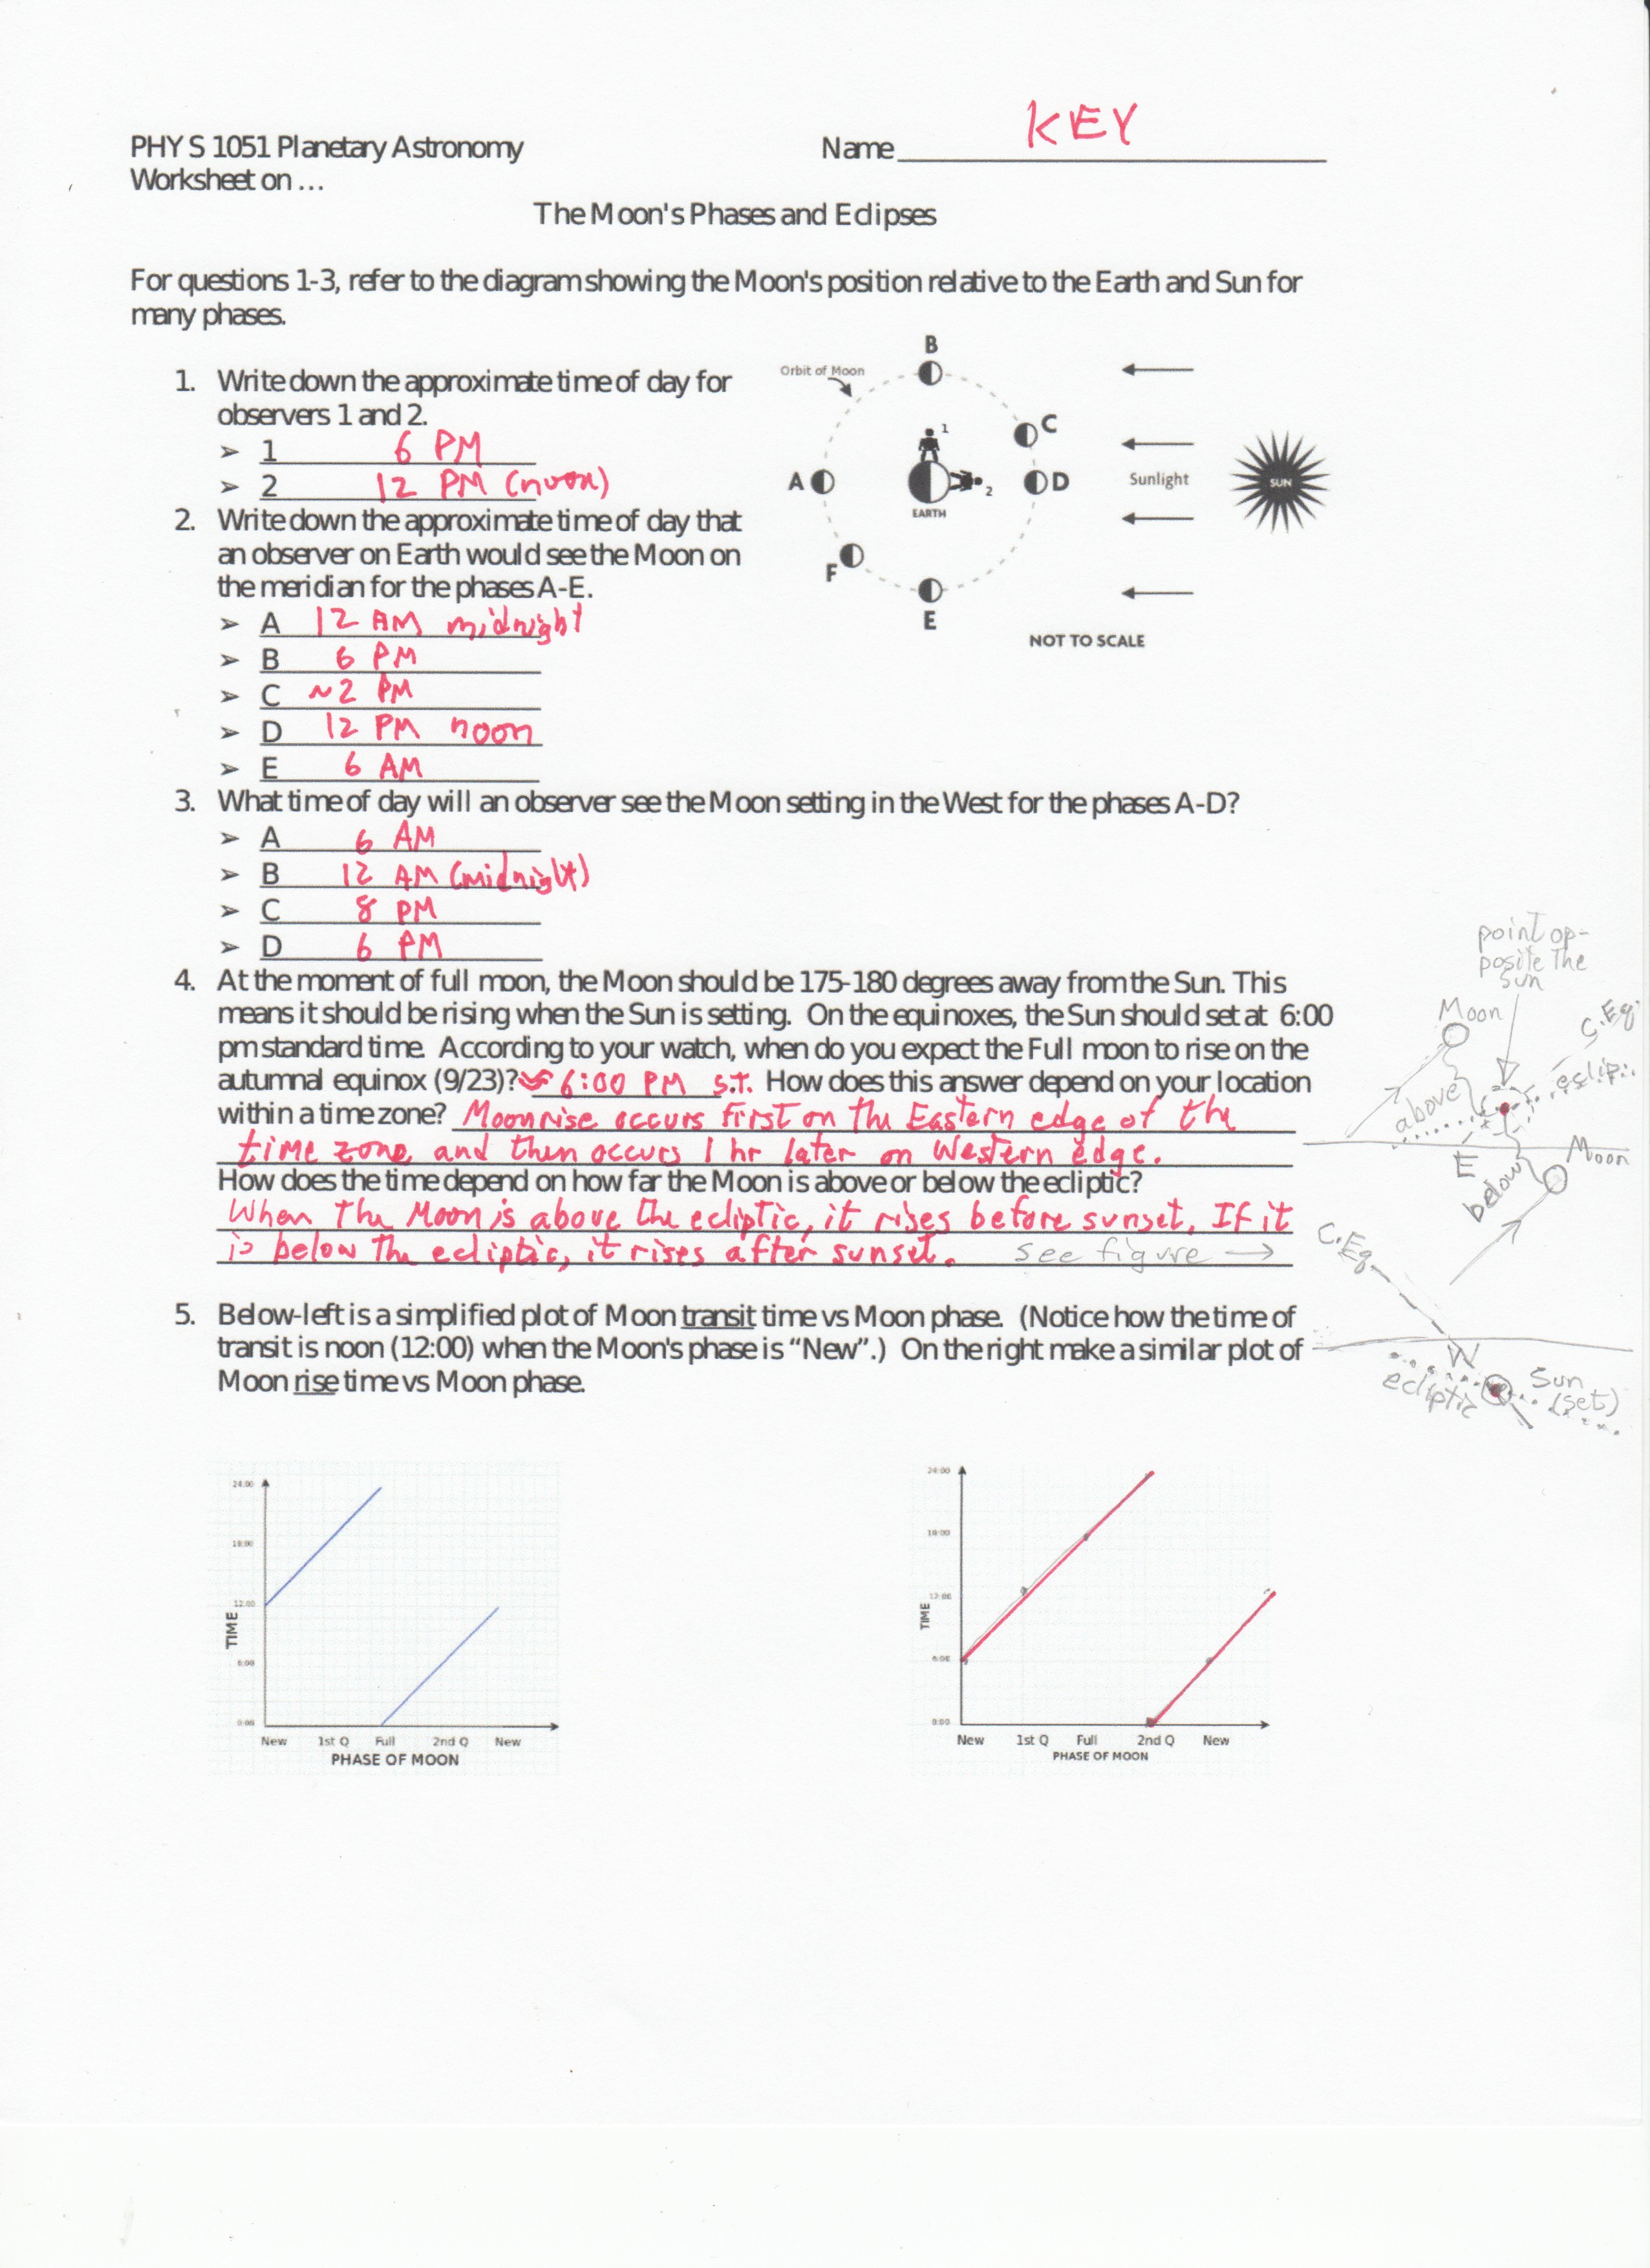 PHYS 1051 Planetary Astronomy
Name KEY
Worksheet on ...
The Moon's Phases and Eclipses
For questions 1-3, refer to the diagram showing the Moon's position relative to the Earth and Sun for
many phases.
1. Write down the approximate time of day for
observers 1 and 2.
➢ 1 6 PM
➢ 2 12 PM (noon)
2. Write down the approximate time of day that
an observer on Earth would see the Moon on
the meridian for the phases A-E.
➢ A 12 AM midnight
➢ B 6 PM
➢ C ~2 PM
➢ D 12 PM noon
➢ E 6 AM
B
Orbit of Moon
C
1
A
D
2
Sunlight
SUN
EARTH
F
E
NOT TO SCALE
3. What time of day will an observer see the Moon setting in the West for the phases A-D?
➢ A 6 AM
➢ B 12 AM (midnight)
➢ C 8 PM
➢ D 6 PM
4. At the moment of full moon, the Moon should be 175-180 degrees away from the Sun. This
means it should be rising when the Sun is setting. On the equinoxes, the Sun should set at 6:00
pm standard time. According to your watch, when do you expect the Full moon to rise on the
autumnal equinox (9/23)? ≈ 6:00 PM S.T. How does this answer depend on your location
within a time zone? Moonrise occurs first on the Eastern edge of the
time zone and then occurs 1 hr later on Western edge.
How does the time depend on how far the Moon is above or below the ecliptic?
When the Moon is above the ecliptic, it rises before sunset. If it
is below the ecliptic, it rises after sunset. see figure →
point op-
posite the
sun
Moon
C.Eq
eclip.
above
E
Moon
below
C.Eq.
W
ecliptic
Sun
(set)
5. Below-left is a simplified plot of Moon transit time vs Moon phase. (Notice how the time of
transit is noon (12:00) when the Moon's phase is “New”.) On the right make a similar plot of
Moon rise time vs Moon phase.
24:00
18:00
12:00
6:00
0:00
TIME
New 1st Q Full 2nd Q New
PHASE OF MOON
24:00
18:00
12:00
6:00
0:00
TIME
New 1st Q Full 2nd Q New
PHASE OF MOON